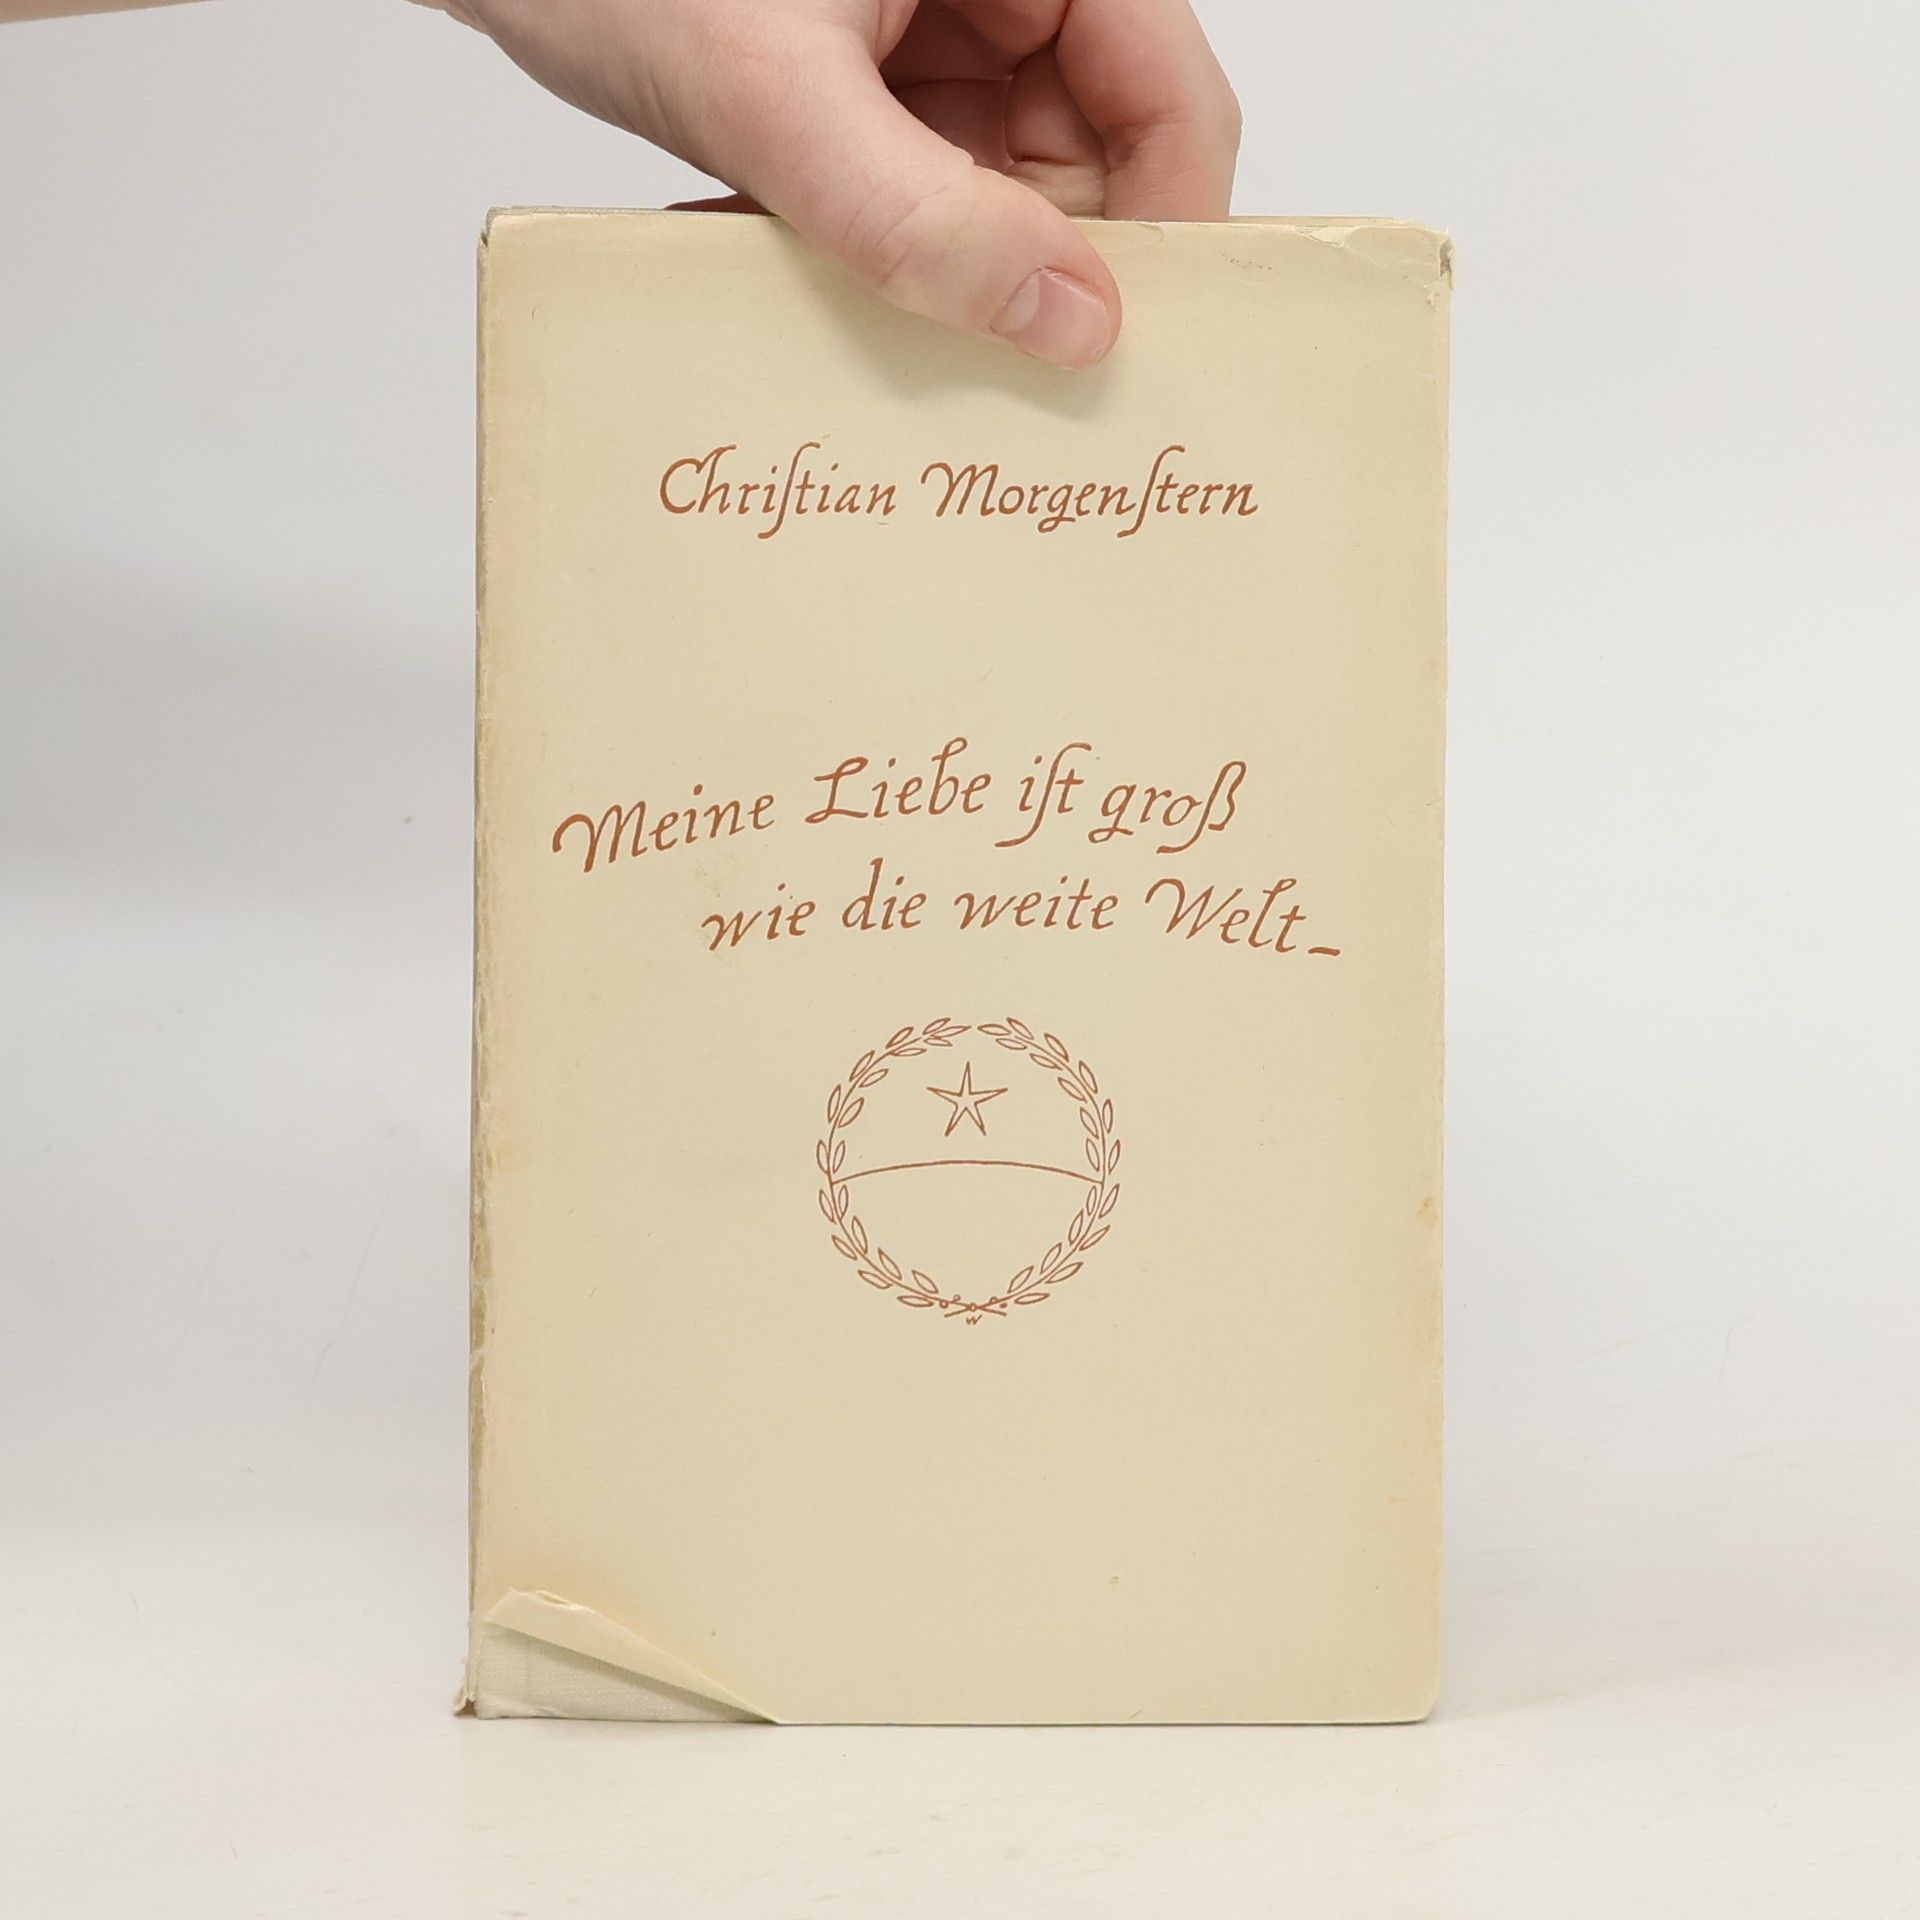 Chriſtian Morgenſtern
Meine Liebe iſt groß
wie die weite Welt_
W